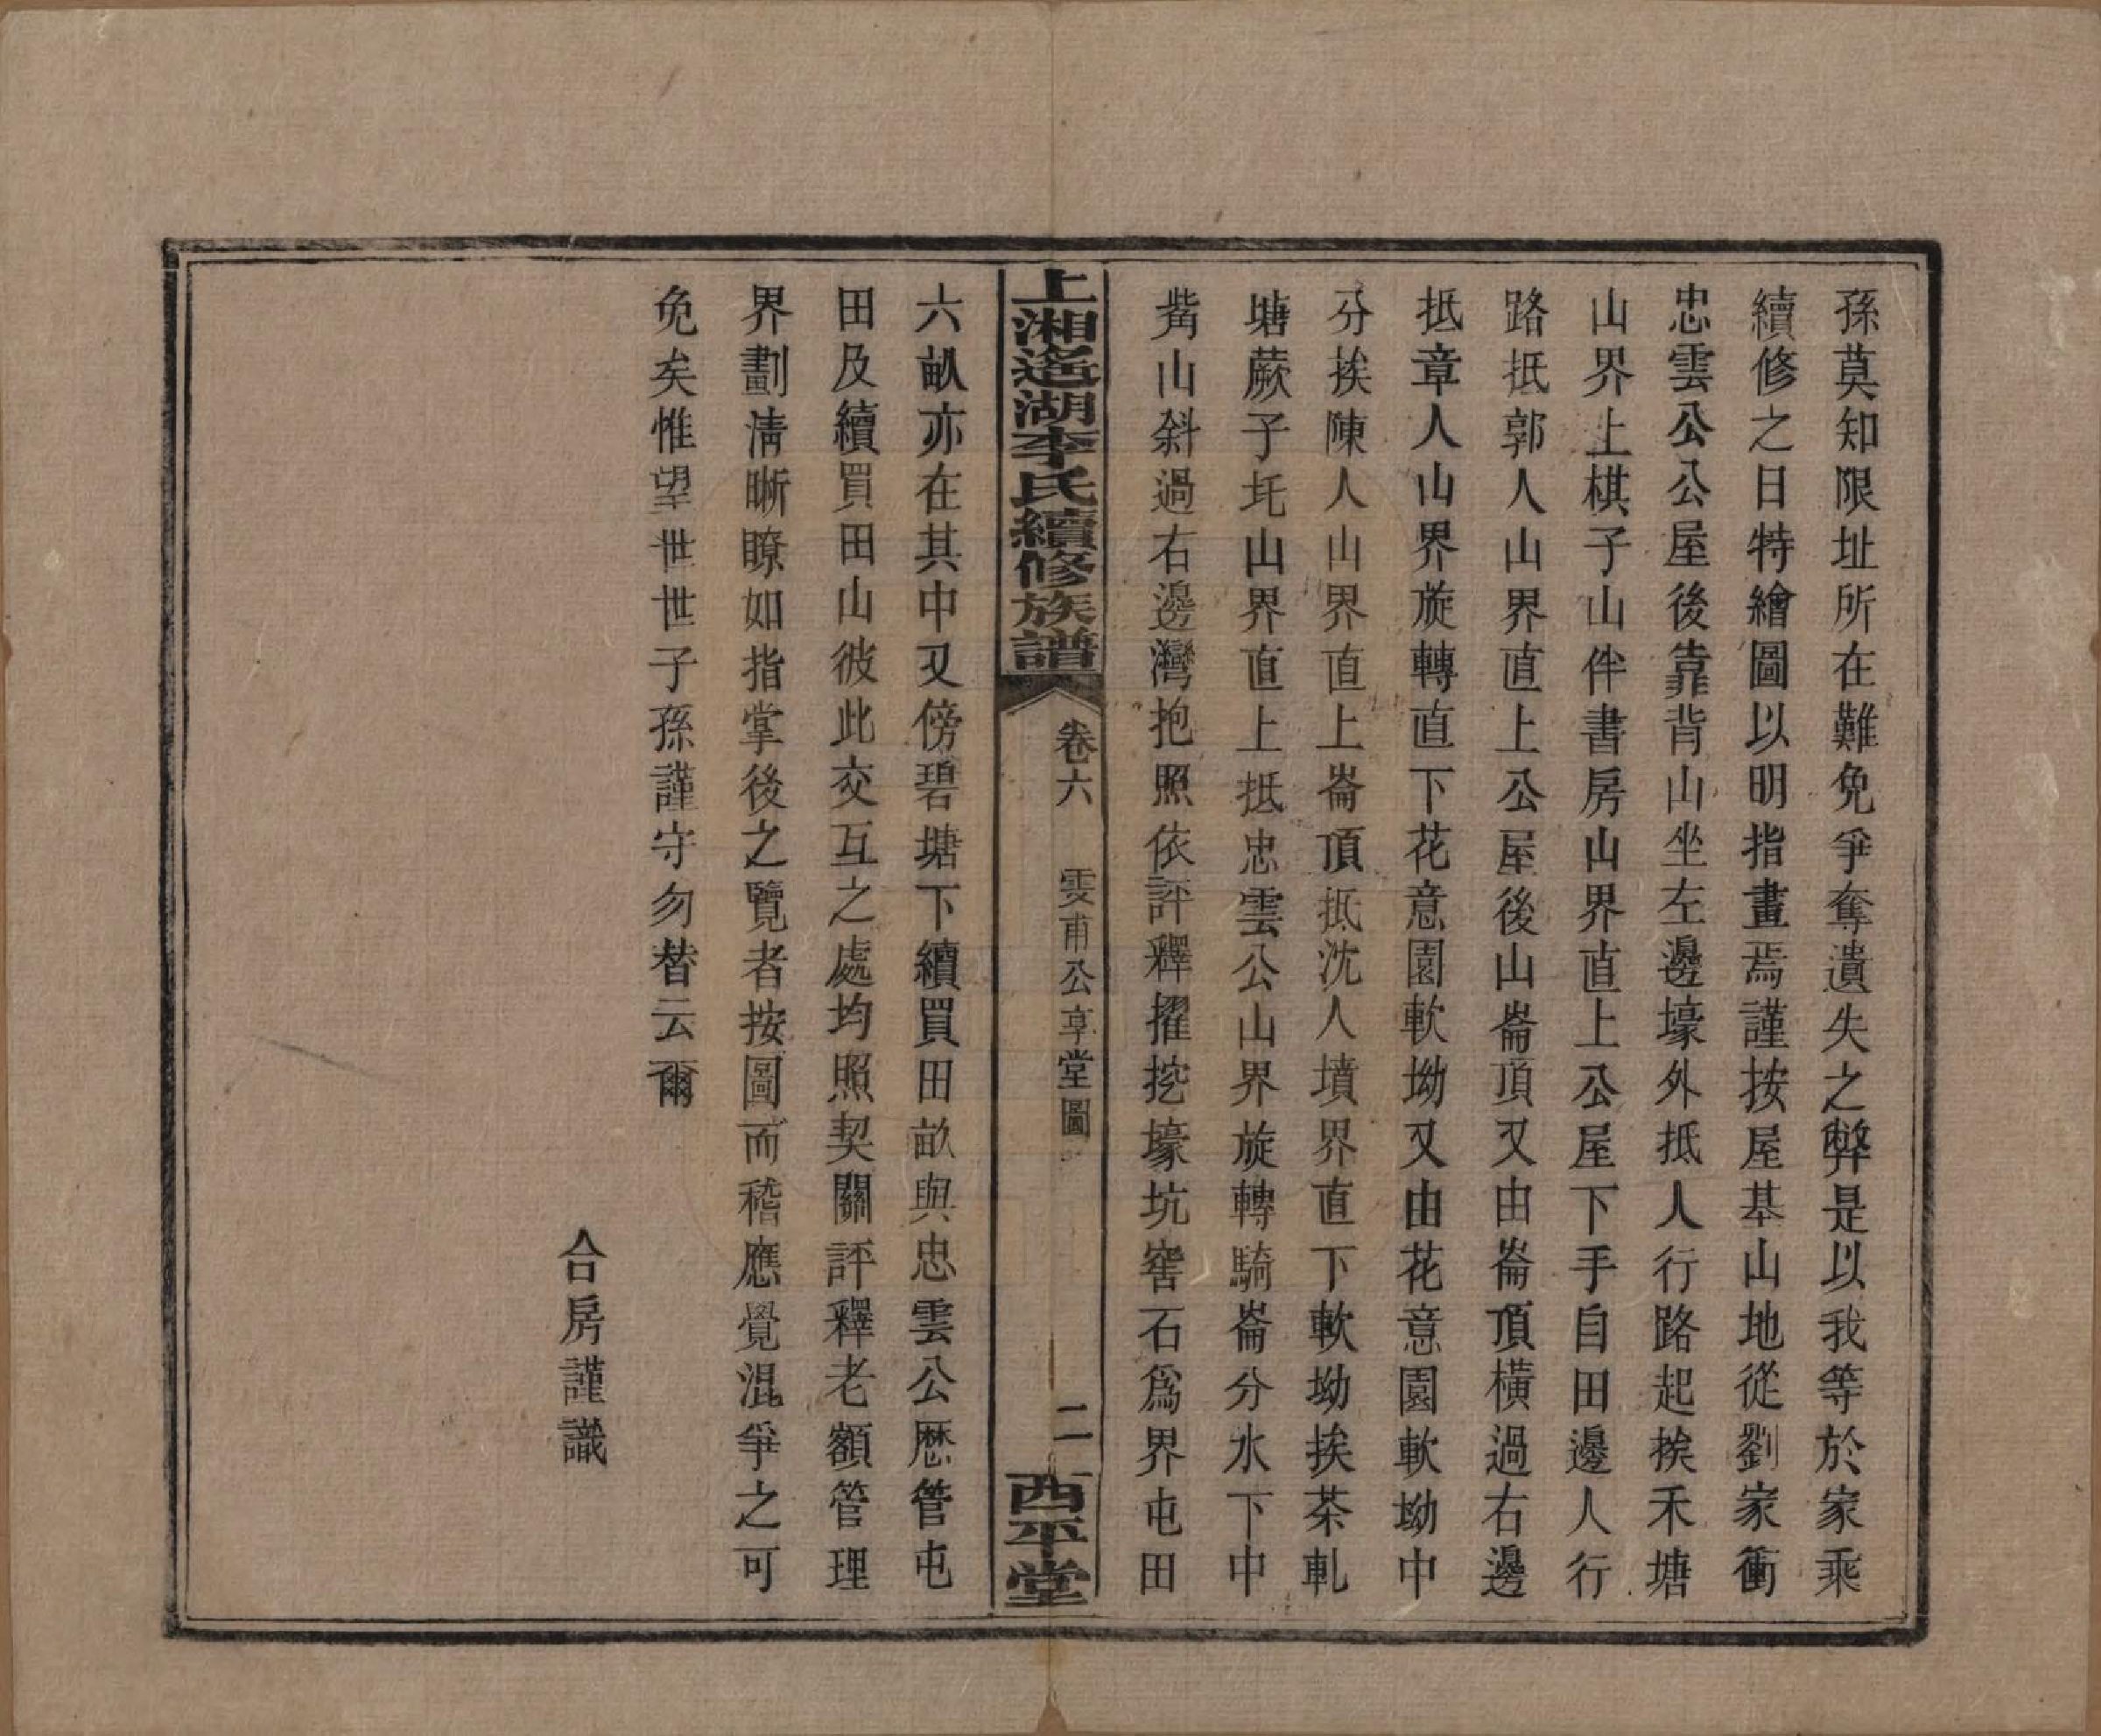 孫莫知限址所在難免爭奪遺失之弊是以我等於家乘
續修之日特繪圖以明指畫焉謹按屋基山地從劉家衝
忠雲公公屋後靠背山坐左邊壕外抵人行路起挨禾塘
山界上棋子山伴書房山界直上公屋下手自田邊人行
路抵郭人山界直上公屋後山崙頂又由崙頂橫過右邊
抵章人山界旋轉直下花意園軟坳又由花意園軟坳中
分挨陳人山界直上崙頂抵沈人墳界直下軟坳挨茶軋
塘蕨子圫山界直上抵忠雲公山界旋轉騎崙分水下中
觜山斜過右邊灣抱照依評釋擢挖壕坑窖石爲界屯田
上湘遙湖李氏續修族譜
卷六 雯甫公享堂圖
二
西平堂
六畝亦在其中又傍碧塘下續買田畝與忠雲公歴管屯
田及續買田山彼此交互之處均照契關評釋老額管理
界劃淸晰瞭如指掌後之覽者按圖而稽應覺混爭之可
免矣惟望世世子孫謹守勿替云爾
合房謹識